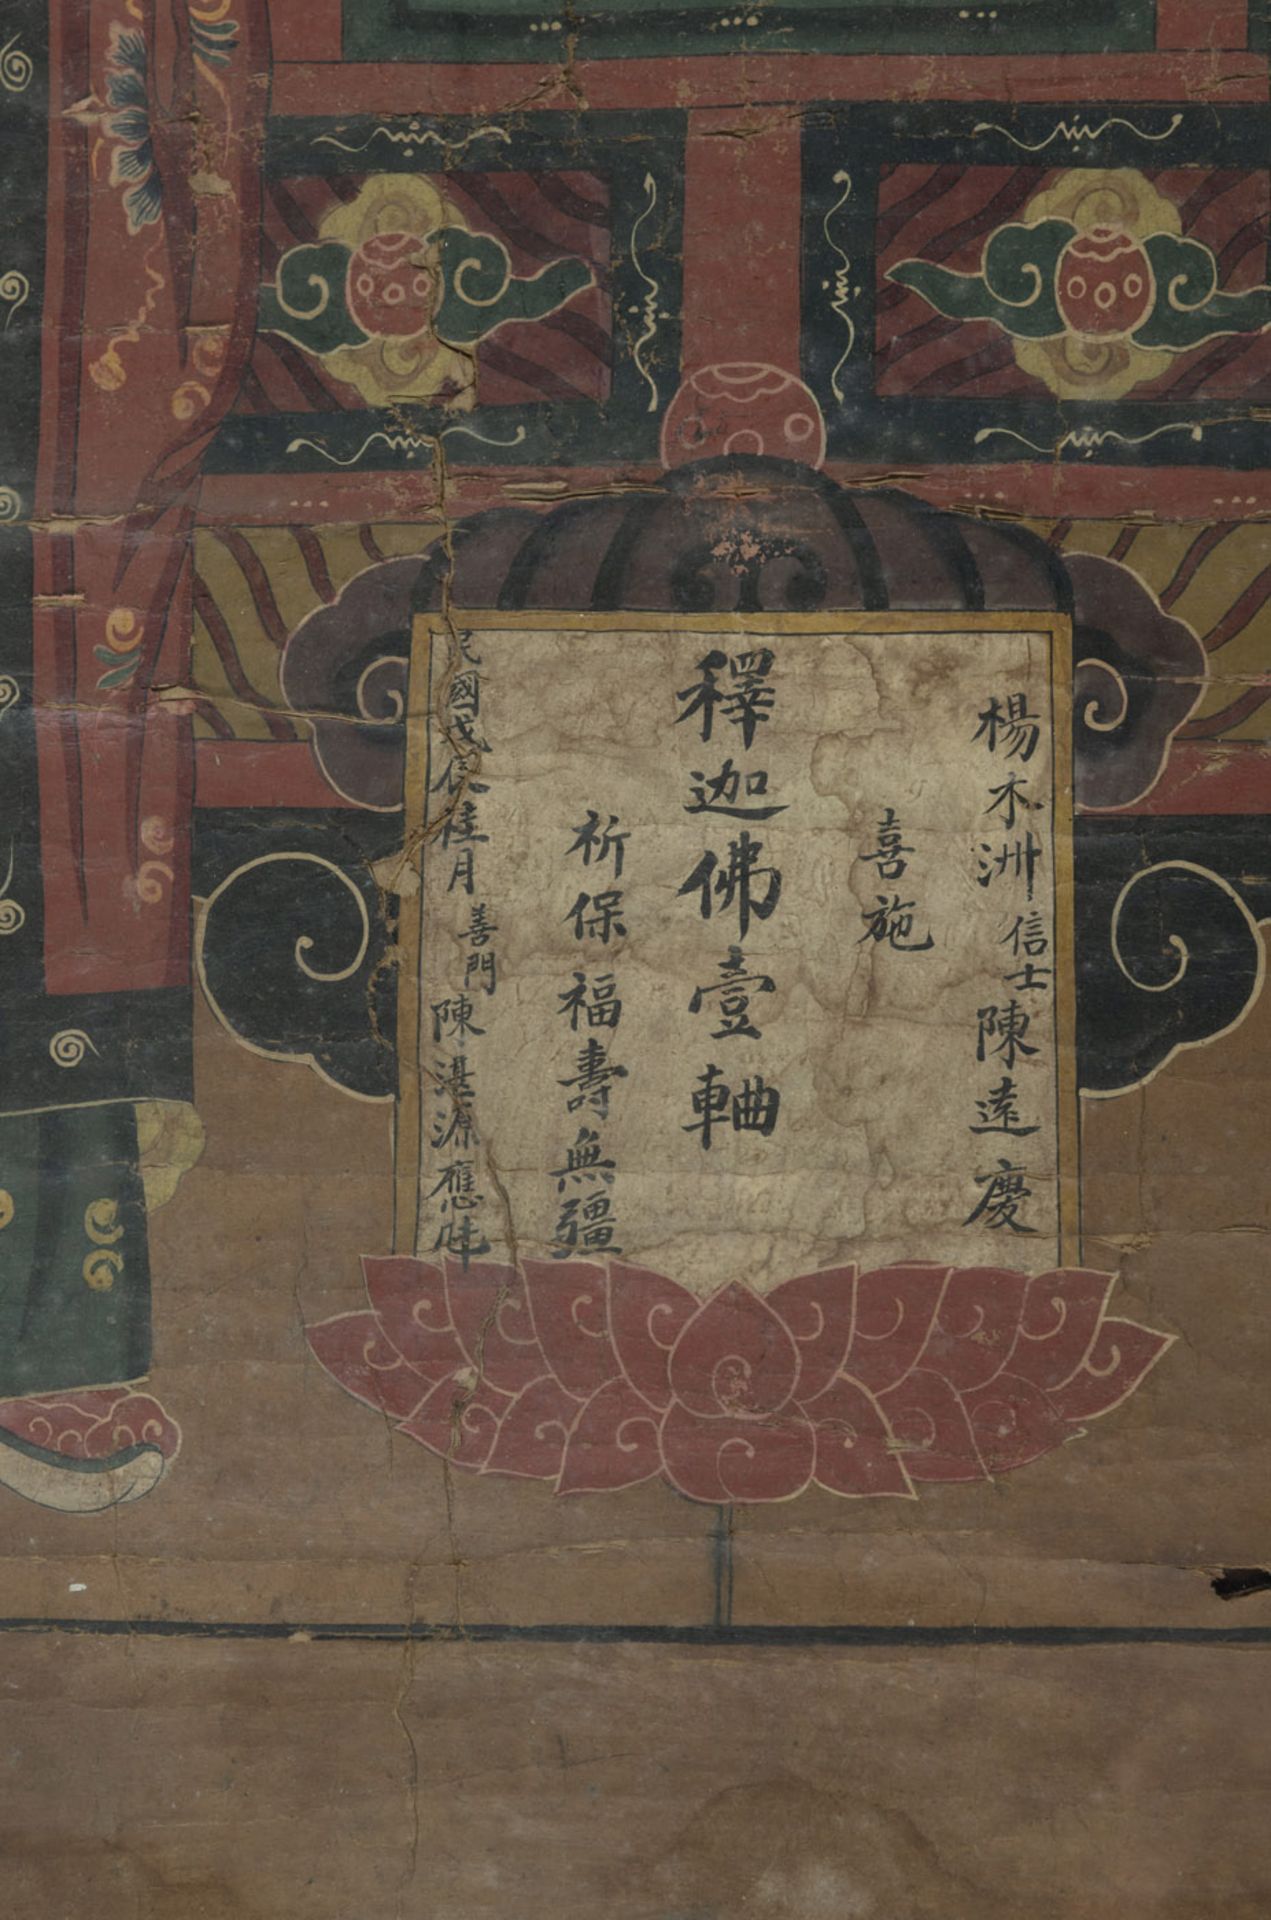 楊木洲信士陳遠慶
喜施
釋迦佛壹軸
祈保福壽無疆
民國戊辰桂月善門陳湛源應